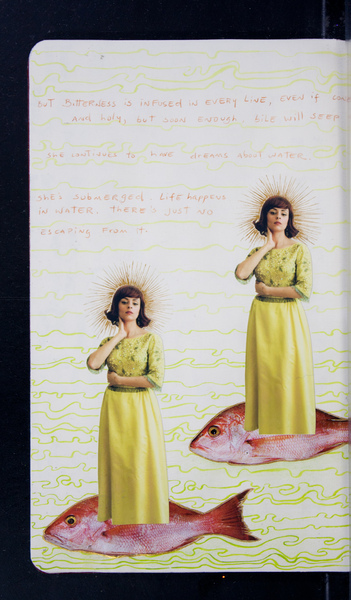 but BITTERNESS is infused in every line, even if
and holy, but soon enough. bile will seep
she continues to have dreams about water.
she's submerged. Life happens
in water. There's just no
escaping from it.